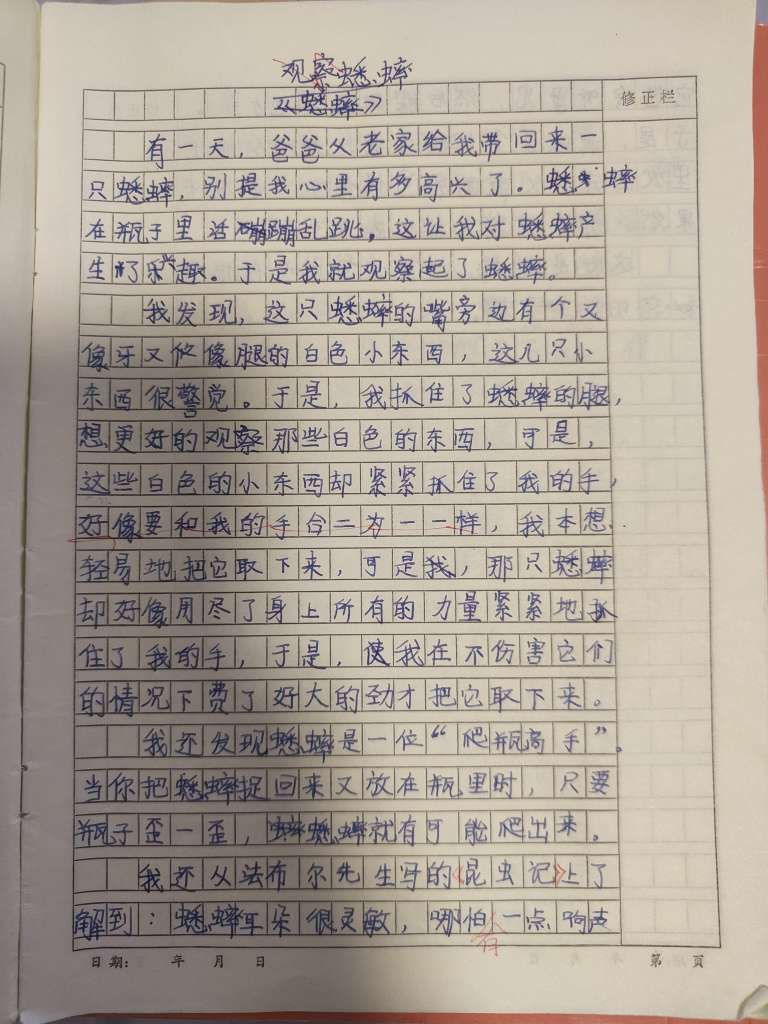 观察蟋蟀
《蟋蟀》
修正栏
有一天，爸爸从老家给我带回来一
只蟋蟀，别提我心里有多高兴了。蟋蟀
在瓶子里活蹦乱跳，这让我对蟋蟀产
生了乐趣。于是我就观察起了蟋蟀。
我发现，这只蟋蟀的嘴旁边有个又
像牙又像腿的白色小东西，这几只小
东西很警觉。于是，我抓住了蟋蟀的腿，
想更好的观察那些白色的东西，可是，
这些白色的小东西却紧紧抓住了我的手，
好像要和我的手合二为一一样，我本想
轻易地把它取下来，可是我，那只蟋蟀
却好像用尽了身上所有的力量紧紧地抓
住了我的手，于是，使我在不伤害它们
的情况下费了好大的劲才把它取下来。
我还发现蟋蟀是一位“爬瓶高手”。
当你把蟋蟀捉回来又放在瓶里时，只要
瓶子歪一歪，蟋蟀就有可能爬出来。
我还从法布尔先生写的《昆虫记》上了
解到：蟋蟀耳朵很灵敏，哪怕有一点响声
日期： 年 月 日 第 页